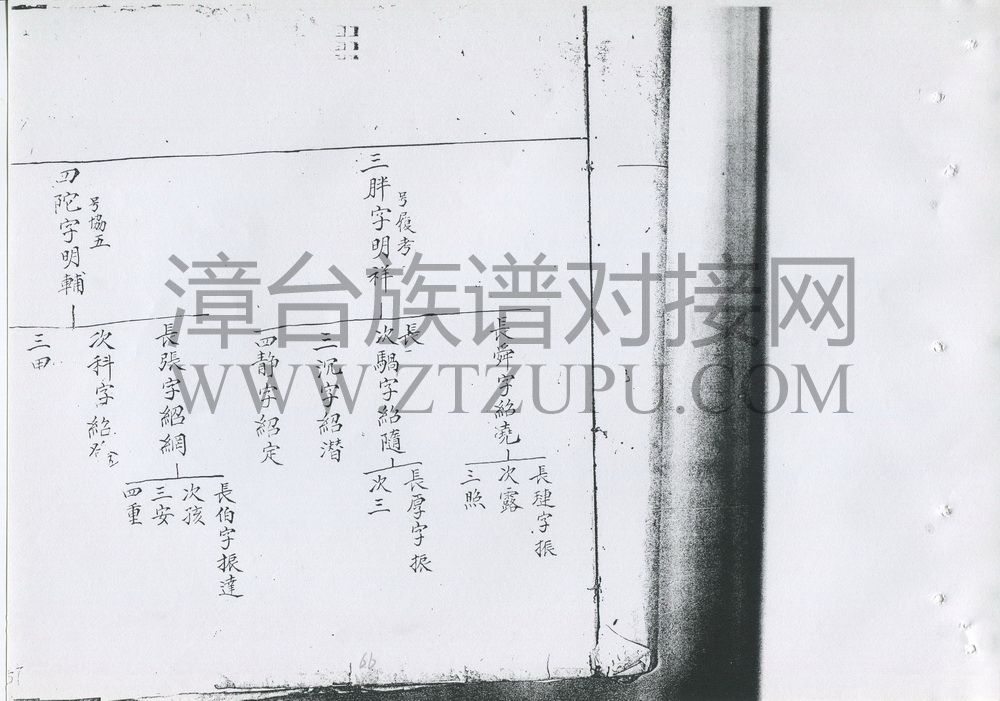 三胖字明祥
号履考
長舜字紹堯
長
次騧字紹隨
三沉字紹潜
四静字紹定
長建字振
次露
三照
長厚字振
次三
四陀字明輔
号協五
長張字紹網
次科字紹
三田
長伯字振達
次孩
三安
四重
66
漳台族谱对接网
WWW.ZTZUPU.COM